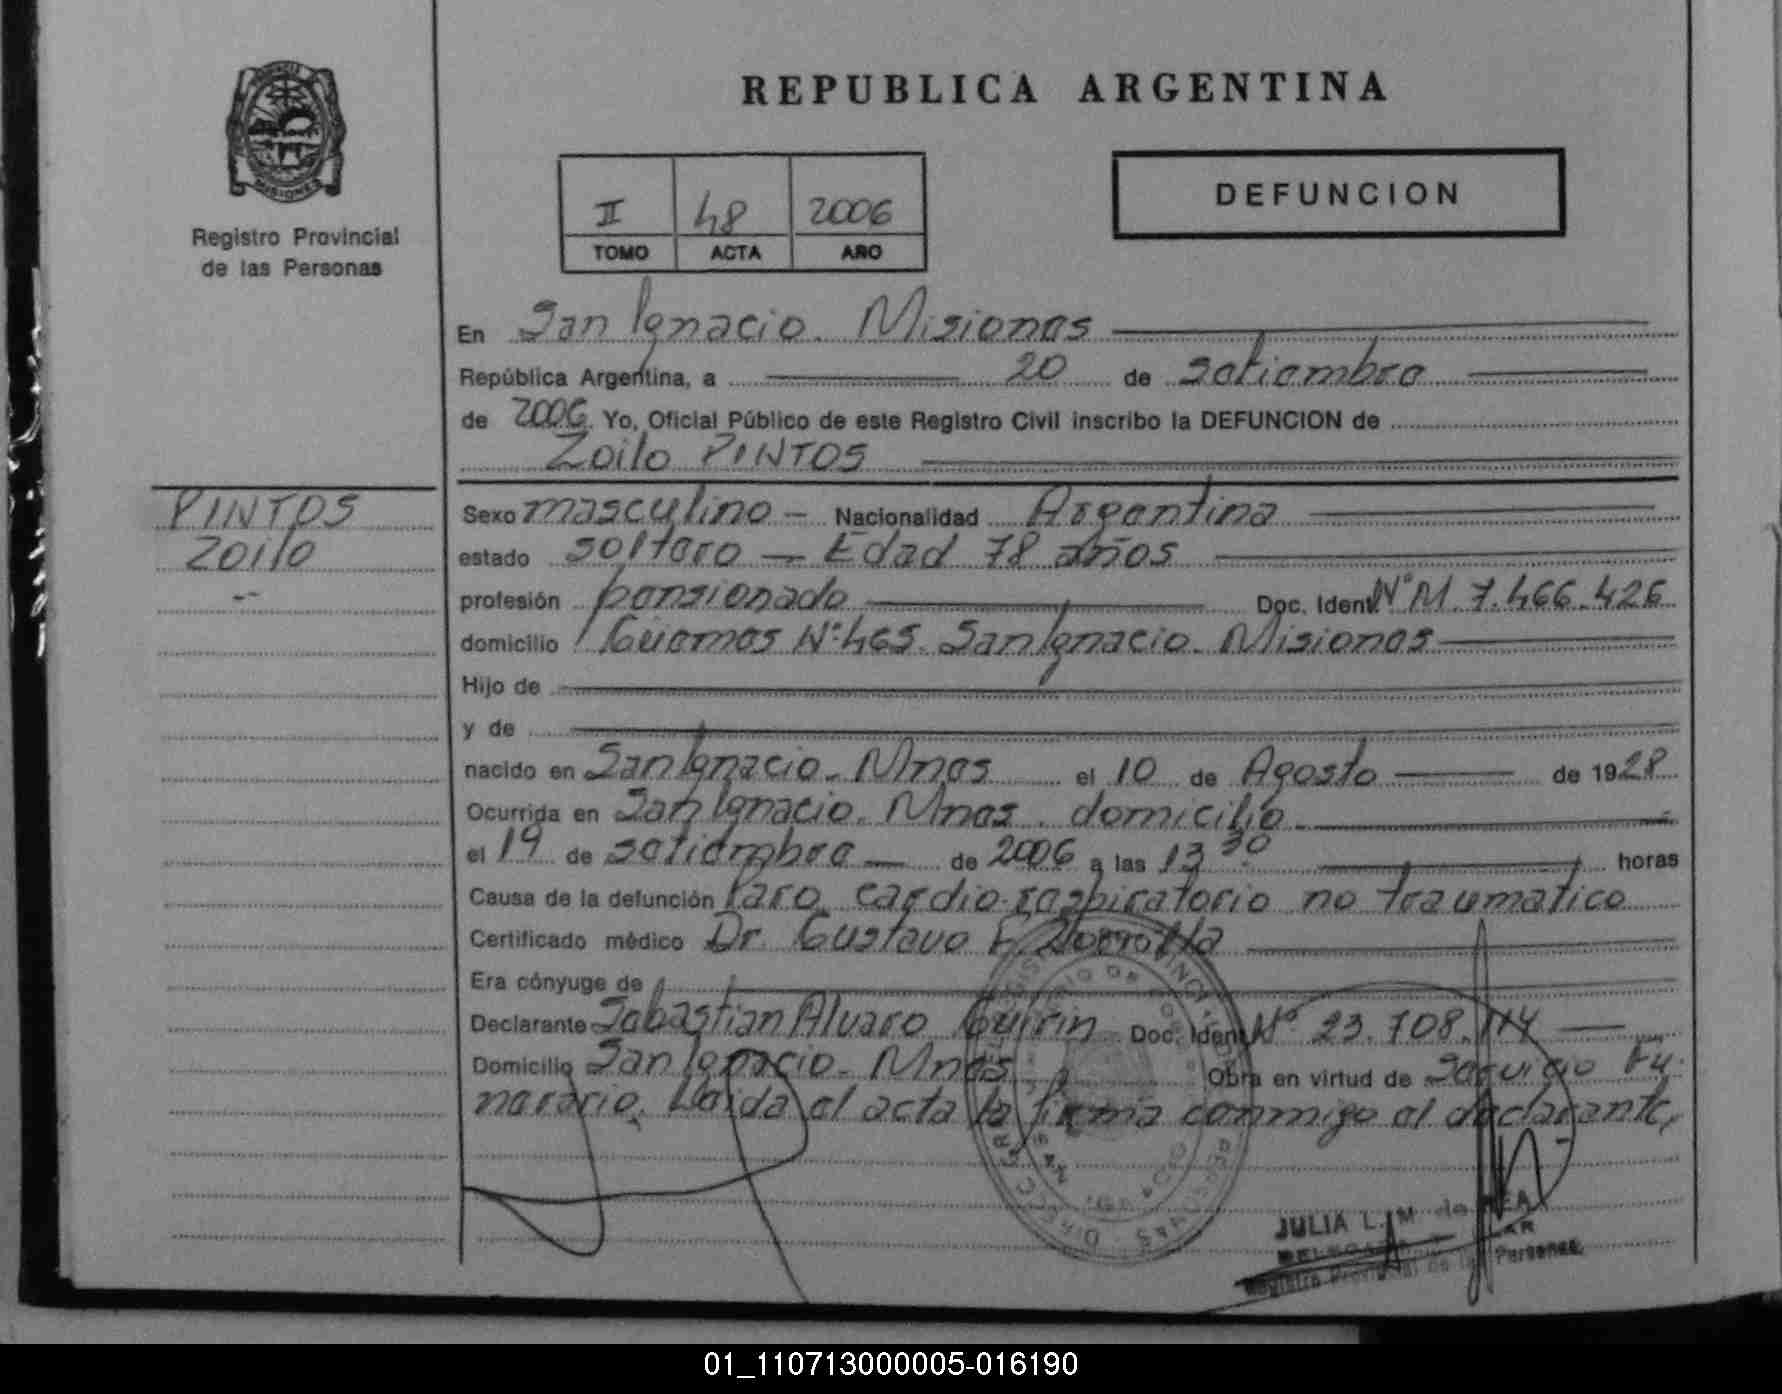 REPUBLICA ARGENTINA
MISIONES
Registro Provincial
de las Personas
II 48 2006
TOMO ACTA AÑO
DEFUNCION
En San Ignacio. Misiones
República Argentina, a 20 de setiembre
de 2006. Yo, Oficial Público de este Registro Civil inscribo la DEFUNCION de
Zoilo PINTOS
PINTOS
Zoilo
Sexo masculino - Nacionalidad Argentina
estado soltero - Edad 78 años
profesión pensionado Doc. Ident. Nº M. 7.466.426
domicilio Güemes Nº 465. San Ignacio. Misiones
Hijo de
y de
nacido en San Ignacio. Mnes el 10 de Agosto de 1928
Ocurrida en San Ignacio. Mnes. domicilio
el 19 de setiembre de 2006 a las 13 30 horas
Causa de la defunción Paro cardio-respiratorio no traumatico
Certificado médico Dr. Gustavo
Era cónyuge de
Declarante Sebastian Alvaro Guirin Doc. Ident. Nº 23.708.114
Domicilio San Ignacio. Mnes Obra en virtud de Servicio Fu-
nerario. Leida el acta la firma conmigo el declarante,
JULIA L. M. de REA
Registro Provincial de las Personas
01_110713000005-016190